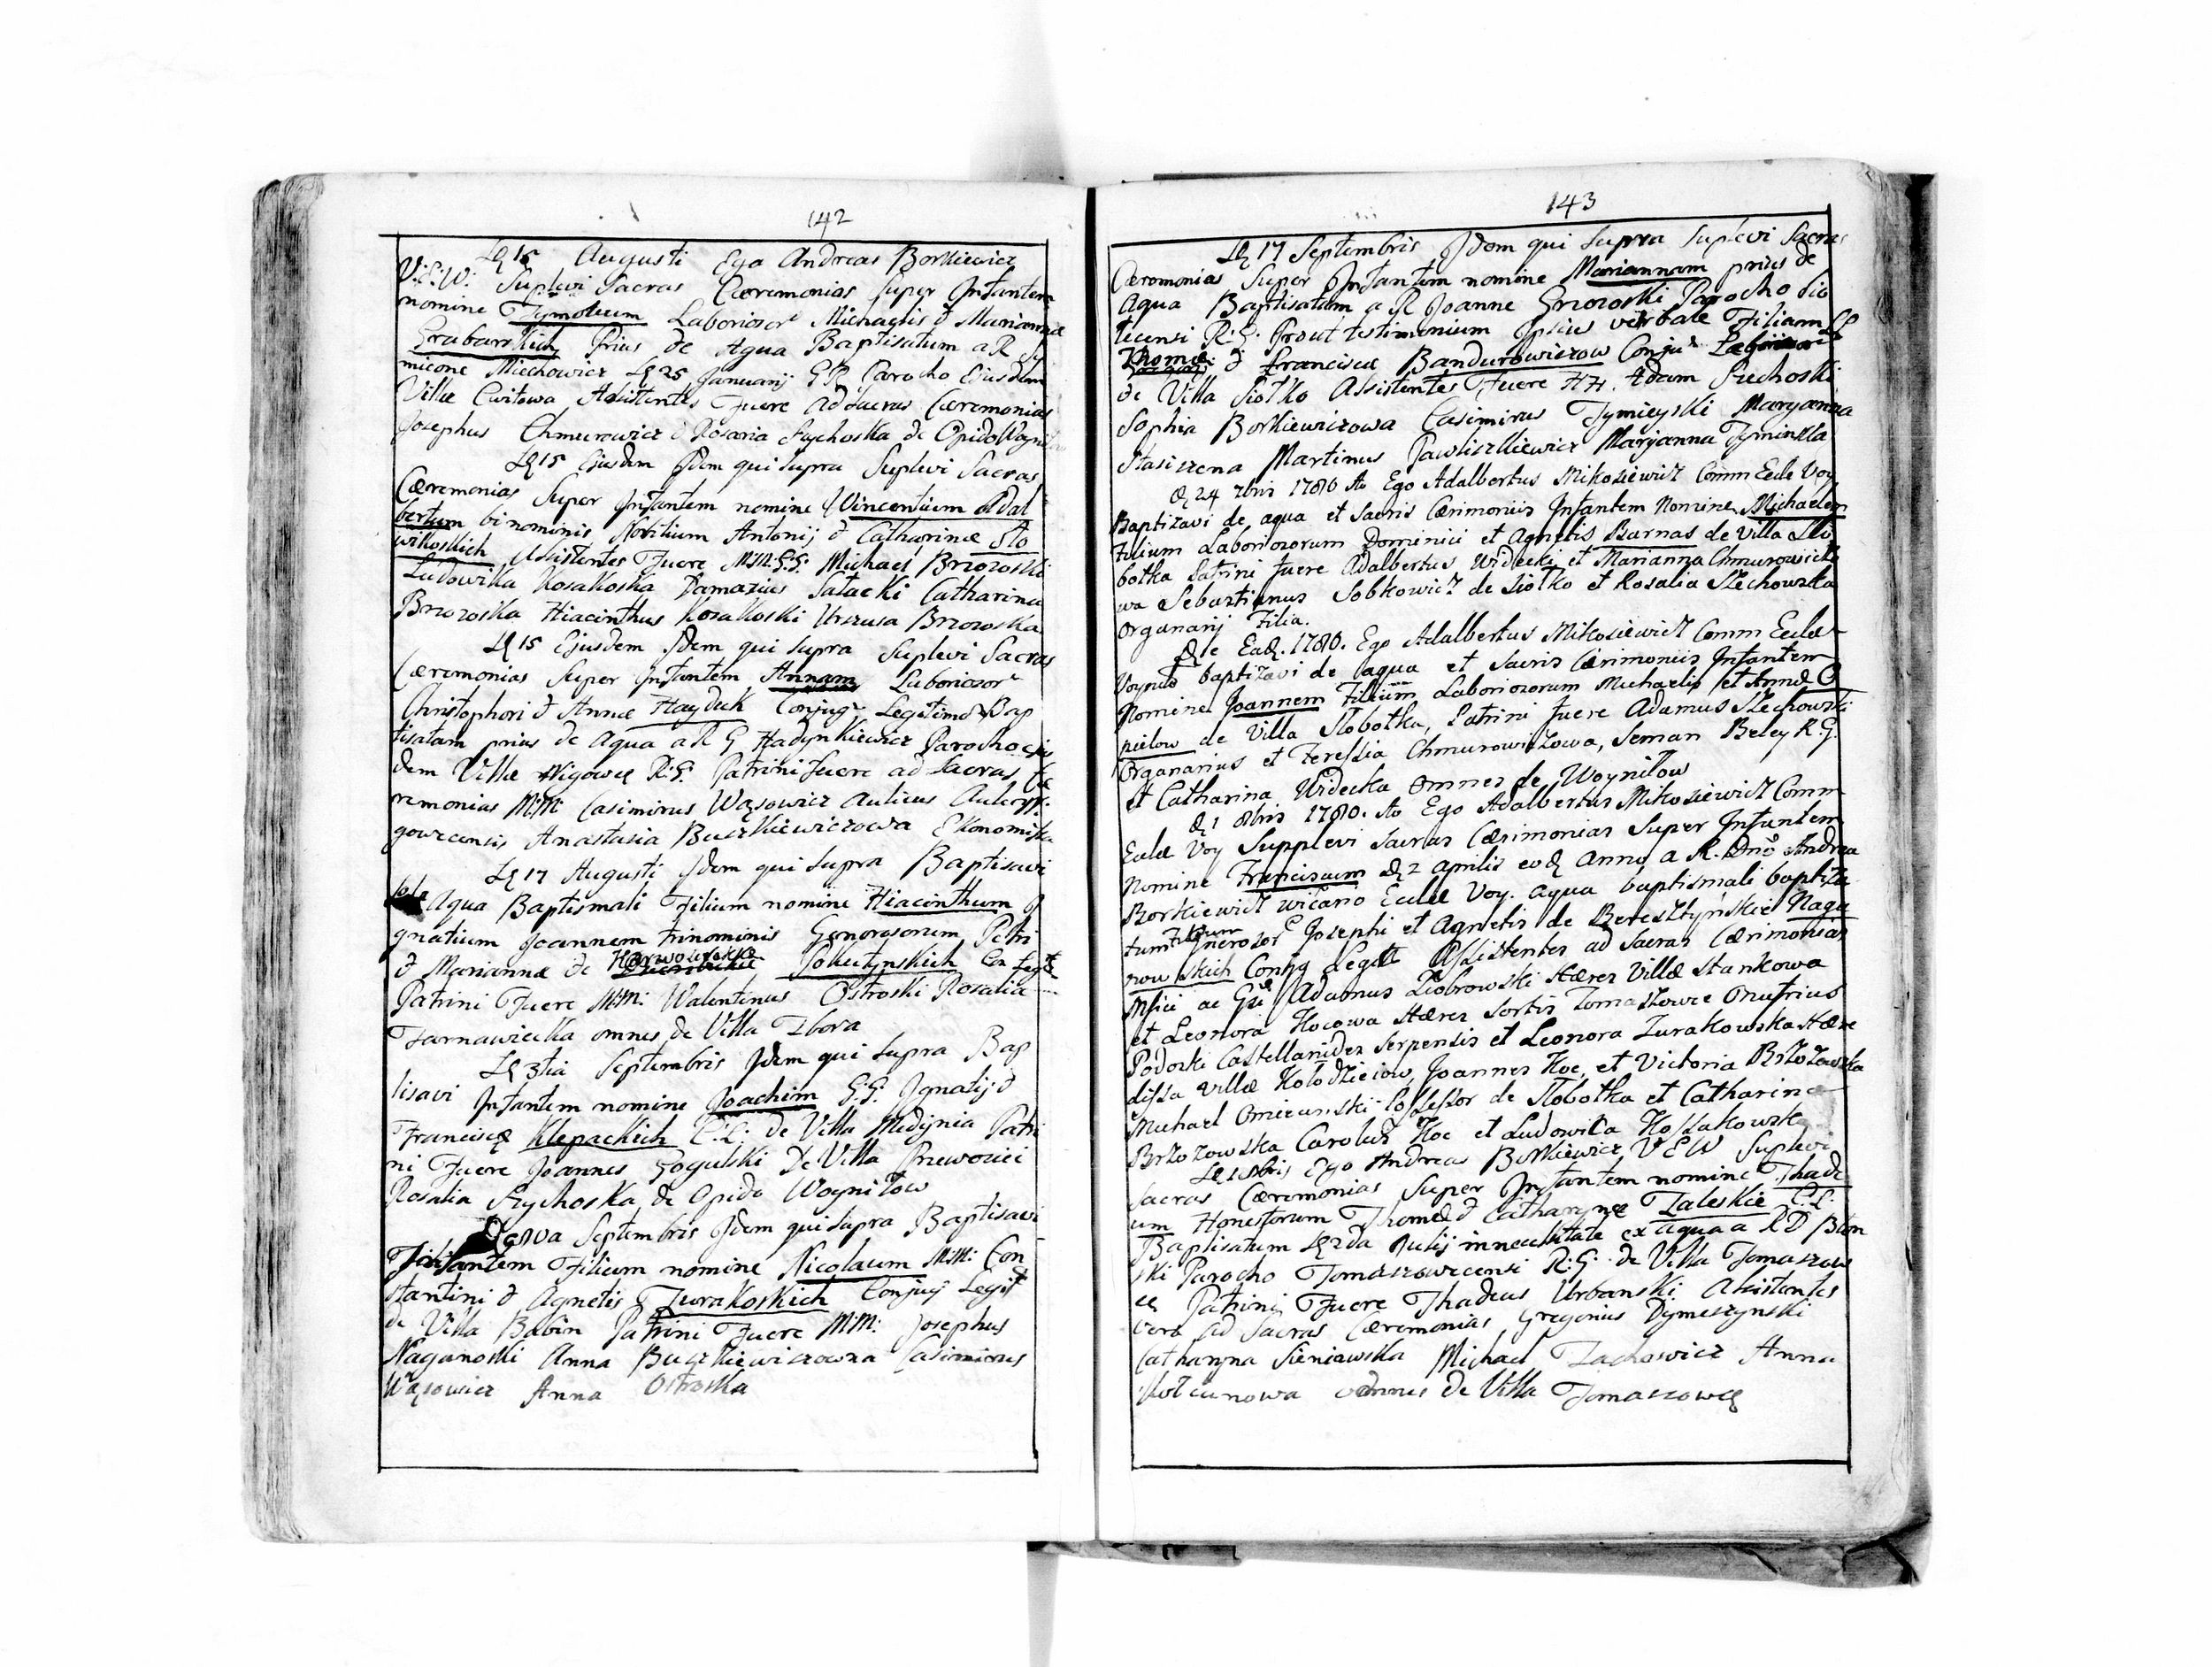 142
15 Augusti Ego Andreas Borkiewicz
V: E: W: Suplevi Sacras Cæremonias super Infantem
nomine Tymoteum Laboriosor Michaelis & Mariannæ
Grabarskich Prius de Aqua Baptisatum a R
micone Miechowicz 25 Januarij G R Parocho Ejusdem
Villæ Cwitowa Assistentes Fuere ad Sacras Cæremonias
Josephus Chmurowicz & Rosaria Szychoska de Opido
15 Ejusdem Idem qui supra Suplevi Sacras
Cæremonias Super Infantem nomine Vincentium Adal
bertum binominis Nobilium Antonij & Catharinæ Sło
wikoskich Assistentes Fuere Michael Brzozoski
Ludowika Kosakoska Damazius Catharina
Brzozoska Hiacinthus Kosakoski Urszula Brzozoska
15 Ejusdem Idem qui supra Suplevi Sacras
Cæremonias Super Infantem Annam Laboriosor
Christophori & Annæ Hayduk Conjug Legitimor Bap
tisatam prius de Aqua a R G Hadynkiewicz Parocho ejus
dem Villæ R: G: Patrini Fuere ad Sacras Cæ
remonias M:M: Casimirus Wąsowicz Aulicus
gowcensis Anastasia Buczkiewiczowa Ekonomiska
17 Augusti Idem qui supra Baptisavi
Aqua Baptismali Filium nomine Hiacinthum I
gnatium Joannem trinominis Generosorum Petri
& Mariannæ de Pokutynskich
Patrini Fuere M:M: Walentinus Ostroski Rosalia
Tarnawiecka omnes de Villa Zbora
3tia Septembris Idem qui supra Bap
tisavi Infantem nomine Joachim G: G: Ignatij &
Franciscæ Klepackich C: L: de Villa Medynia Patri
ni Fuere Joannes Gogulski De Villa Przewoziec
Rosalia Szychoska de Opido Woyniłow
8va Septembris Idem qui supra Baptisavi
Infantem Filium nomine Nicolaum M:M: Con
stantini & Agnetis Zurakoskich Conjug Legit
de Villa Babin Patrini Fuere M:M: Josephus
Naganoski Anna Buczkiewiczowna Casimirus
Wąsowicz Anna Ostroska
143
17 Septembris Idem qui supra Suplevi Sacras
Cæremonias Super Infantem nomine Mariannam prius de
Aqua Baptisatam a R Joanne Parocho Sio
lecensi R: G: Prout testimonium Ipsius verbale Filiam
Thomæ & Franciscæ Bandurowiczow Conju
de Villa Siołko Assistentes Fuere Adam Szechoski
Sophia Borkiewiczowa Casimirus Tymieyski Maryanna
Stasiszena Martinus Pawliszkiewicz Maryanna Tyminska
24 7bris 1780 Ao Ego Adalbertus Mikosiewicz Comm Eccle Voy
Baptizavi de aqua et sacris Cærimoniis Infantem Nomine Michaelem
Filium Laboriosorum Dominici et Agnetis Barnas de Villa Sło
botka Patrini fuere Adalbertus Widecki et Marianna Chmurowicz
wa Sebastianus Sobkowicz de Siołko et Rosalia Szechowska
Organarij Filia.
Die Ead. 1780. Ego Adalbertus Mikosiewicz Comm Ecclæ
baptizavi de aqua et sacris Cærimoniis Infantem
Nomine Joannem Filium Laboriosorum Michaelis et Annæ O
pielow de Villa Slobotka, Patrini fuere Adamus Szechowski
Organarius et Teressia Chmurowiczowa, Seman Beley R. G.
et Catharina Widecka omnes de Woyniłow
1 8bris 1780. Ao Ego Adalbertus Mikosiewicz Comm
Ecclæ Voy Supplevi Sacras Cærimonias Super Infantem
Nomine Franciscum 2 Aprilis eod anno a R. Dno Andrea
Borkiewicz wicario Ecclæ Voy. aqua baptismali baptiza
tum Filium Generosor Josephi et Agnetis de Beresztynskie Nagu
rowskich Conjug Legitt Assistentes ad Sacras Cærimonias
Msici ac Adamus Ziobrowski Hæres Villæ Stankowa
et Leonora Hocowa Hæres Sortis Tomaszowce Onufrius
Podoski Castellanides Serpensis et Leonora Zurakowska Hære
dissa villæ Kołodzieiow, Joannes Hoc, et Victoria Brzozowska
Michael Possessor de Slobotka et Catharina
Brzozowska Carolus Hoc et Ludowica Kossakowska
Ego Andreas Borkiewicz V E W Suplevi
Sacras Cæremonias Super Infantem nomine Thade
um Honestorum Thomæ & Catharynæ Zaleskie C: L:
Baptisatum 2da Julij in necessitate ex aqua a R D
ski Parocho Tomaszowcensi R: G: de Villa Tomaszow
ce Patrini Fuere Thadeus Urbanski Assistentes
vero ad Sacras Cæremonias Gregorius Dymeszynski
Catharyna Sieniawska Michael Zachowicz Anna
omnes de Villa Tomaszowce